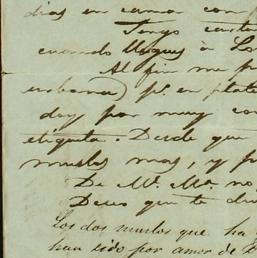 dias en cama con
Tengo carta
cuando llegues a
Al fin me
urbana) ps. en plata
doy por muy con
etiqueta. Desde que
muelas mas, y p
De Ma. Ma. no
Deseo que te di
Los dos muelos que ha
han sido por amor de